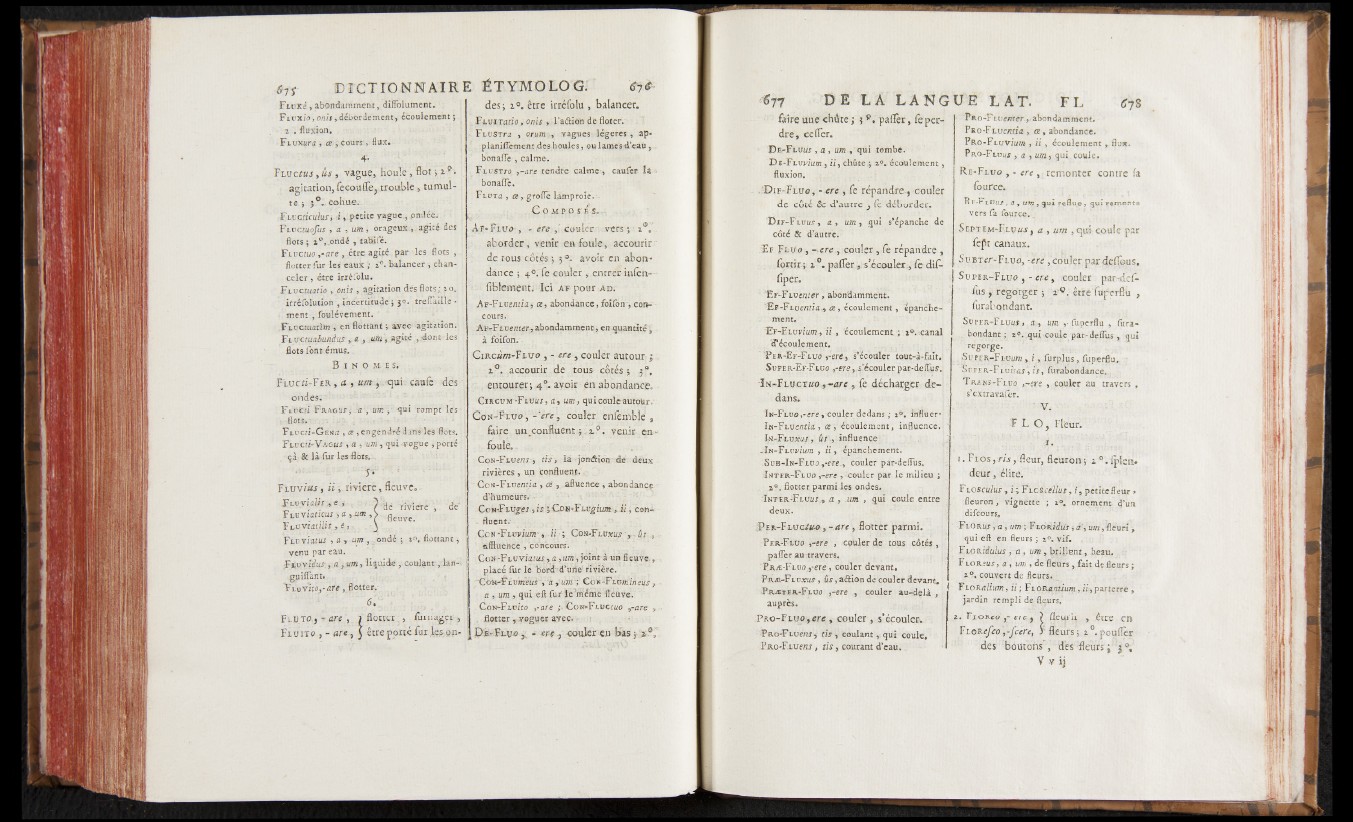 675 DICTIONNAIRE ÉTYMOLOG. 676
FLUXè, abondamment, dissolument.
FLUXio, onis, débordement, écoulement;
2. fluxion.
FLUXura, æ, cours, flux.
4.
FLUCtus, ûs, vague, houle, flot; 2°.
agitation, secousse, trouble, tumul-
te; 3°. cohue.
FLUCticulus, i, petite vague, ondée.
FLUCtuosus, a, um, orageux, agité des
flots; 2°. ondé, tabisé.
FLUCtuo,-are, être agité par les flots,
flotter sur les eaux; 2°. balancer, chan-
celer, être irrésolu.
FLUCtuatio, onis, agitation des flots; 2o.
irrésolution, incertitude; 3o. tressaille-
ment, soulévement.
FLUCtuatim, en flottant; avec agitation.
FLUCtuabundus, a, um, agité, dont les
flots sont émus.
BINOMES.
FLUCti-FER, a, um, qui cause des
ondes.
FLUCti FRAGus, a, um, qui rompt les
flots.
FLUCti-GENa, æ, engendré dans les flots.
FLUCti-VAGus, a, um, qui vogue, porté
çà & là sur les flots.
5.
FLUVius, ii, riviere, fleuve.
FLUVialis, e,
FLUViaticus, a, um, } de riviere, de
FLUViatilis, e, fleuve.
FLUViatus, a, um, ondé; 2°. flottant,
venu par eau.
FLUVidus, a, um, liquide, coulant, lan-
guissant.
FLUVito,-are, flotter.
6.
FLUTO, - are, } flotter, surnager,
FLUITO, - are, } être porté sur les on-
des; 2°. être irrésolu, balancer.
FLUITatio, onis, l'action de floter.
FLUSTra, orum, vagues légeres, ap-
planissement des houles, ou lames d'eau,
bonasse, calme.
FLUSTro,-are rendre calme, causer la
bonasse.
FLUTa, æ, grosse lamproie.
COMPOSÉS.
AF-FLUO, - ere, couler vers; 2°.
aborder, venir en foule, accourir
de tous côtés; 3°. avoir en abon-
dance; 4°. se couler, entrer insen-
siblement. Ici AF pour AD.
AF-FLUentia, æ, abondance, foison, con-
cours.
AF-FLUenter, abondamment, en quantité,
à foison.
CIRCùm-FLUO, - ere, couler autour;
2°. accourir de tous côtés; 3°.
entourer; 4°. avoir en abondance.
CIRCUM-FLUus, a, um, qui coule autour.
CON-FLUO, - ere, couler ensemble,
faire un confluent; 2°. venir en
foule.
CON-FLUens, tis, la jonction de deux
rivières, un confluent.
CON-FLUentia, æ, afluence, abondance
d'humeurs.
CON-FLUges, is; CON-FLUgium, ii, con-
fluent.
CON-FLUvium, ii; CON-FLUxus, ûs,
affluence, concours.
CON-FLUViatus, a, um, joint à un fleuve,
placé sur le bord d'une rivière.
CON-FLUmeus, a, um; CON-FLUmineus,
a, um, qui est sur le même fleuve.
CON-FLUito,-are; CON-FLUCtuo,-are,
flotter, voguer avec.
DE-FLUO, - ere, couler en bas; 2°.
677 DE LA LANGUE LAT. FL 678
faire une chûte; 3°. passer, se per-
dre, cesser.
DE-FLUus, a, um, qui tombe.
DE-FLUvium, ii, chûte; 2°. écoulement,
fluxion.
DIF-FLUO, - ere, se répandre, couler
de côté & d'autre, se déborder.
DIF-FLUus, a, um, qui s'épanche de
côté & d'autre.
EF FLUO, - ere, couler, se répandre,
sortir; 2°. passer, s'écouler, se dis-
siper.
EF-FLUenter, abondamment.
EF-FLUentia, æ, écoulement, épanche-
ment.
EF-FLUvium, ii, écoulement; 2°. canal
d'écoulement.
PER-EF-FLUO,-ere, s'écouler tout-à-fait.
SUPER-EF-FLUO,-ere, s'écouler par-dessus.
IN-FLUCTUO,-are, se décharger de-
dans.
IN-FLUO,-ere, couler dedans; 2°. influer.
IN-FLUentia, æ, écoulement, influence.
IN-FLUXus, ûs, influence
IN-FLUvium, ii, épanchement.
SUB-IN-FLUO,-ere, couler par-dessus.
INTER-FLUO,-ere, couler par le milieu;
2°. flotter parmi les ondes.
INTER-FLUus, a, um, qui coule entre
deux.
PER-FLUCTUO,-are, flotter parmi.
PER-FLUO,-ere, couler de tous côtés,
passer au travers.
PRÆ-FLUO,-ere, couler devant.
PRÆ-FLUXus, ûs, action de couler devant.
PRÆTER-FLUO,-ere, couler au-delà,
auprès.
PRO-FLUO, ere, couler, s'écouler.
PRO-FLUens, tis, coulant, qui coule.
PRO-FLUens, tis, courant d'eau.
PRO-FLUenter, abondamment.
PRO-FLUentia, æ, abondance.
PRO-FLUvium, ii, écoulement, flux.
PRO-FLUus, a, um, qui coule.
RE-FLUO, - ere, remonter contre sa
source.
RE-FLUus, a, um, qui reflue, qui remonte
vers sa source.
SEPTEM-FLUus, a, um, qui coule par
sept canaux.
SUBTer-FLUO, -ere, couler par dessous.
SUPER-FLUO, - ere, couler par-des-
sus, regorger; 2°. être superflu,
surabondant.
SUPER-FLUus, a, um, superflu, sura-
bondant; 2°. qui coule par-dessus, qui
regorge.
SUPER-FLUum, i, surplus, superflu.
SUPER-FLUitas, is, surabondance.
TRANS-FLUO,-ere, couler au travers,
s'extravaser.
V.
FLO, Fleur.
I.
1. FLOS, ris, fleur, fleuron; 2°. splen-
deur, élite.
FLOSculus, i; FLOScellus, i, petite fleur,
fleuron, vignette; 2°. ornement d'un
discours.
FLORus, a, um; FLORidus, a, um, fleuri,
qui est en fleurs; 2°. vif.
FLORidulus, a, um, brillent, beau.
FLOReus, a, um, de fleurs, fait de fleurs;
2°. couvert de fleurs.
FLORalium, ii; FLORantium, ii, parterre,
jardin rempli de fleurs.
2. FLOREO,- ere, } fleurir, être en
FLOResco,-scere, } fleurs; 2°. pousser
des boutons, des fleurs; 3°.
V v ij